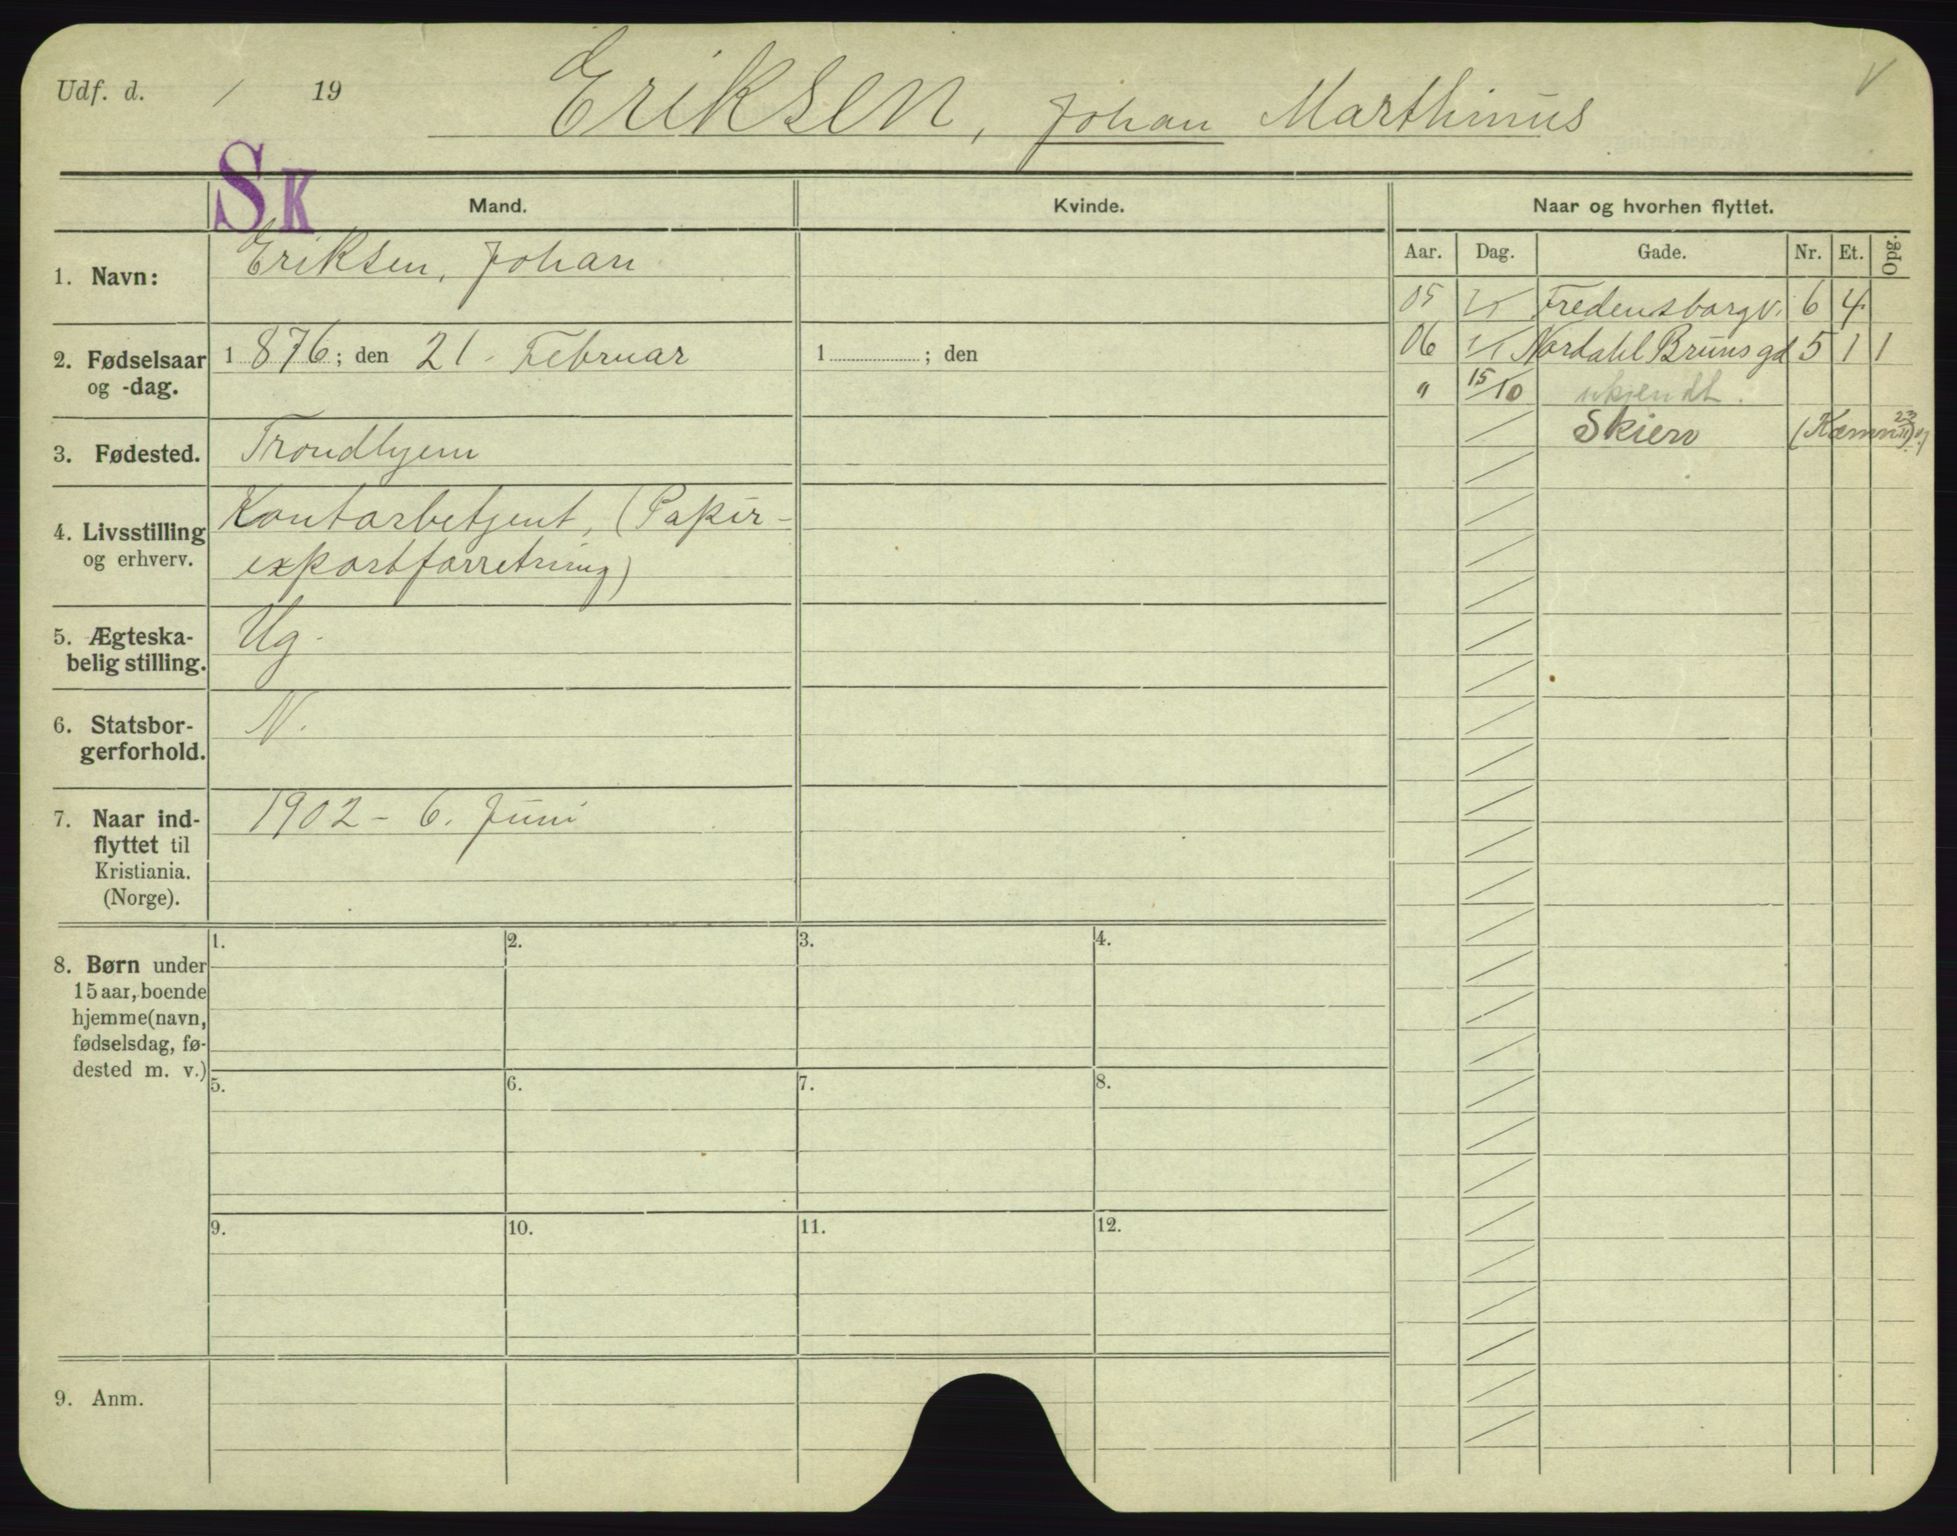 Udf. d. / 19
Eriksen, Johan Marthinus
V
SK
Mand. Kvinde. Naar og hvorhen flyttet.
Aar. Dag. Gade. Nr. Et. Opg.
1. Navn: Eriksen, Johan
05 1/1 Fredensborgv. 6 4
06 1/1 Nordahl Bruns gd 5 1 1
" 15/10 ukjendt.
Skien (Kæmn 23/11 07)
2. Fødselsaar og -dag. 1 876; den 21. Februar 1 ; den
3. Fødested. Trondhjem
4. Livsstilling og erhverv. Kontorbetjent, (Papir-
exportforretning)
5. Ægteska-
belig stilling. Ug.
6. Statsbor-
gerforhold. N.
7. Naar ind-
flyttet til
Kristiania.
(Norge). 1902 - 6. Juni
8. Børn under
15 aar, boende
hjemme (navn,
fødselsdag, fø-
dested m. v.)
1. 2. 3. 4.
5. 6. 7. 8.
9. 10. 11. 12.
9. Anm.